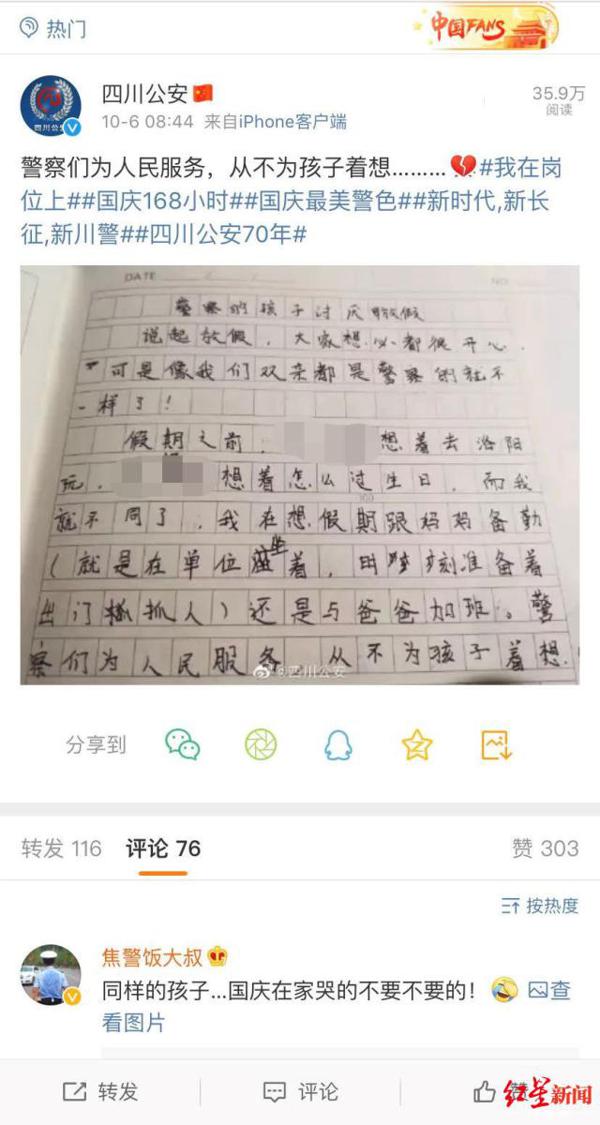 热门
中国FANS
四川公安
35.9万
阅读
10-6 08:44 来自iPhone客户端
警察们为人民服务，从不为孩子着想………💔#我在岗
位上##国庆168小时##国庆最美警色##新时代,新长
征,新川警##四川公安70年#
DATE
NO
警察的孩子讨厌放假
说起放假，大家想必都很开心。
可是像我们双亲都是警察的就不
一样了！
假期之前，想着去洛阳
玩，想着怎么过生日，而我
就不同了，我在想假期跟妈妈备勤
（就是在单位坐着，时刻准备着
出门抓人）还是与爸爸加班。警
察们为人民服务，从不为孩子着想。
@四川公安
分享到
转发 116 评论 76 赞 303
按热度
焦警饭大叔
同样的孩子...国庆在家哭的不要不要的！🤣查
看图片
转发 评论 赞
红星新闻